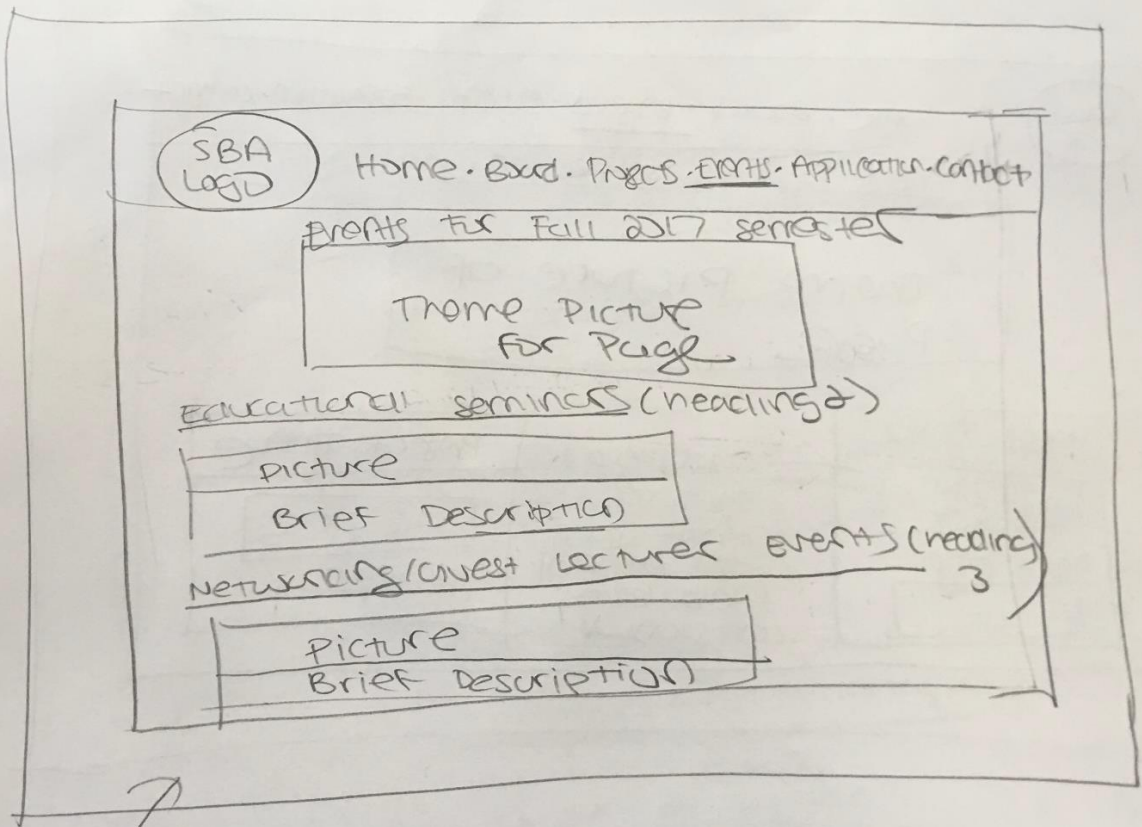 SBA
LOGO
Home · Board · Projects · Events · Application · Contact
Events for Fall 2017 semester
Theme Picture
for Page
Educational seminars (heading 2)
Picture
Brief Description
Networking/Guest Lecturer events (heading
3)
Picture
Brief Description